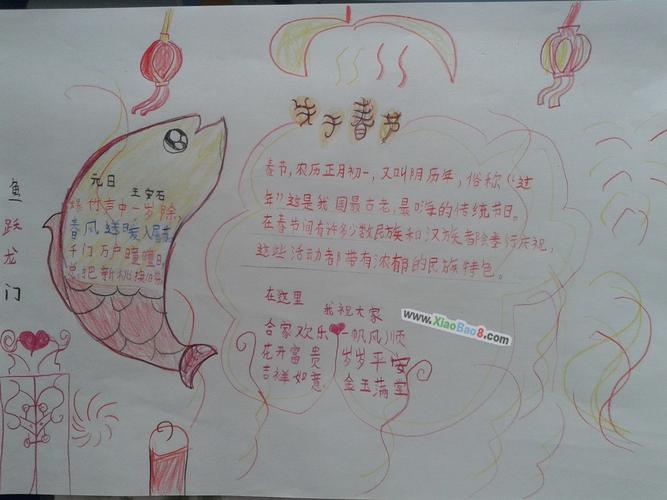 鱼跃龙门
元日 王安石
爆竹声中一岁除,
春风送暖入屠苏
千门万户曈曈日,
总把新桃换旧符
关于春节
春节,农历正月初一,又叫阴历年,俗称“过
年”这是我国最古老,最的传统节日。
在春节间有许多少数民族和汉族都会举行庆祝,
这些活动都带有浓郁的民族特色。
在这里 我祝大家
合家欢乐 一帆风顺
花开富贵 岁岁平安
吉祥如意 金玉满堂
www.XiaoBao8.com